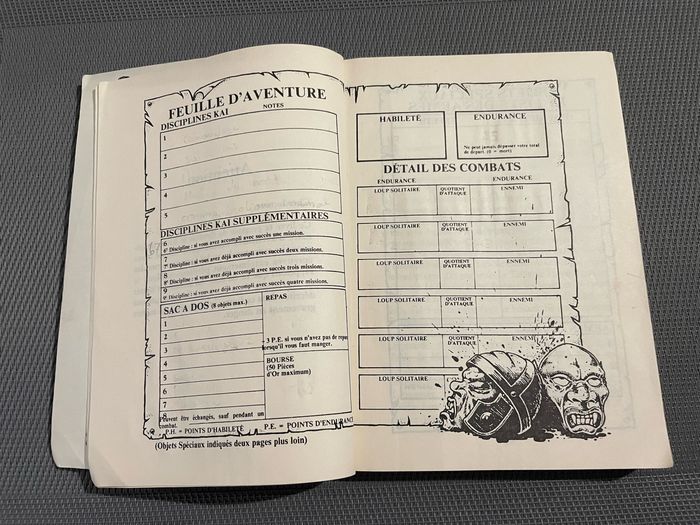 FEUILLE D'AVENTURE
DISCIPLINES KAI
NOTES
1
2
3
4
5
DISCIPLINES KAI SUPPLÉMENTAIRES
6
6e Discipline : si vous avez accompli avec succès une mission.
7
7e Discipline : si vous avez déjà accompli avec succès deux missions.
8
8e Discipline : si vous avez déjà accompli avec succès trois missions.
9
9e Discipline : si vous avez déjà accompli avec succès quatre missions.
SAC A DOS (8 objets max.)
1
2
3
4
5
6
7
8
Peuvent être échangés, sauf pendant un
combat.
REPAS
3 P.E. si vous n'avez pas de repas
lorsqu'il vous faut manger.
BOURSE
(50 Pièces
d'Or maximum)
P.H. = POINTS D'HABILETÉ
P.E. = POINTS D'ENDURANCE
(Objets Spéciaux indiqués deux pages plus loin)
HABILETÉ
ENDURANCE
Ne peut jamais dépasser votre total
de départ. (0 = mort)
DÉTAIL DES COMBATS
ENDURANCE
ENDURANCE
LOUP SOLITAIRE
QUOTIENT
D'ATTAQUE
ENNEMI
LOUP SOLITAIRE
QUOTIENT
D'ATTAQUE
ENNEMI
LOUP SOLITAIRE
QUOTIENT
D'ATTAQUE
ENNEMI
LOUP SOLITAIRE
QUOTIENT
D'ATTAQUE
ENNEMI
LOUP SOLITAIRE
QUOTIENT
D'ATTAQUE
ENNEMI
LOUP SOLITAIRE
QUOTIENT
D'ATTAQUE
ENNEMI